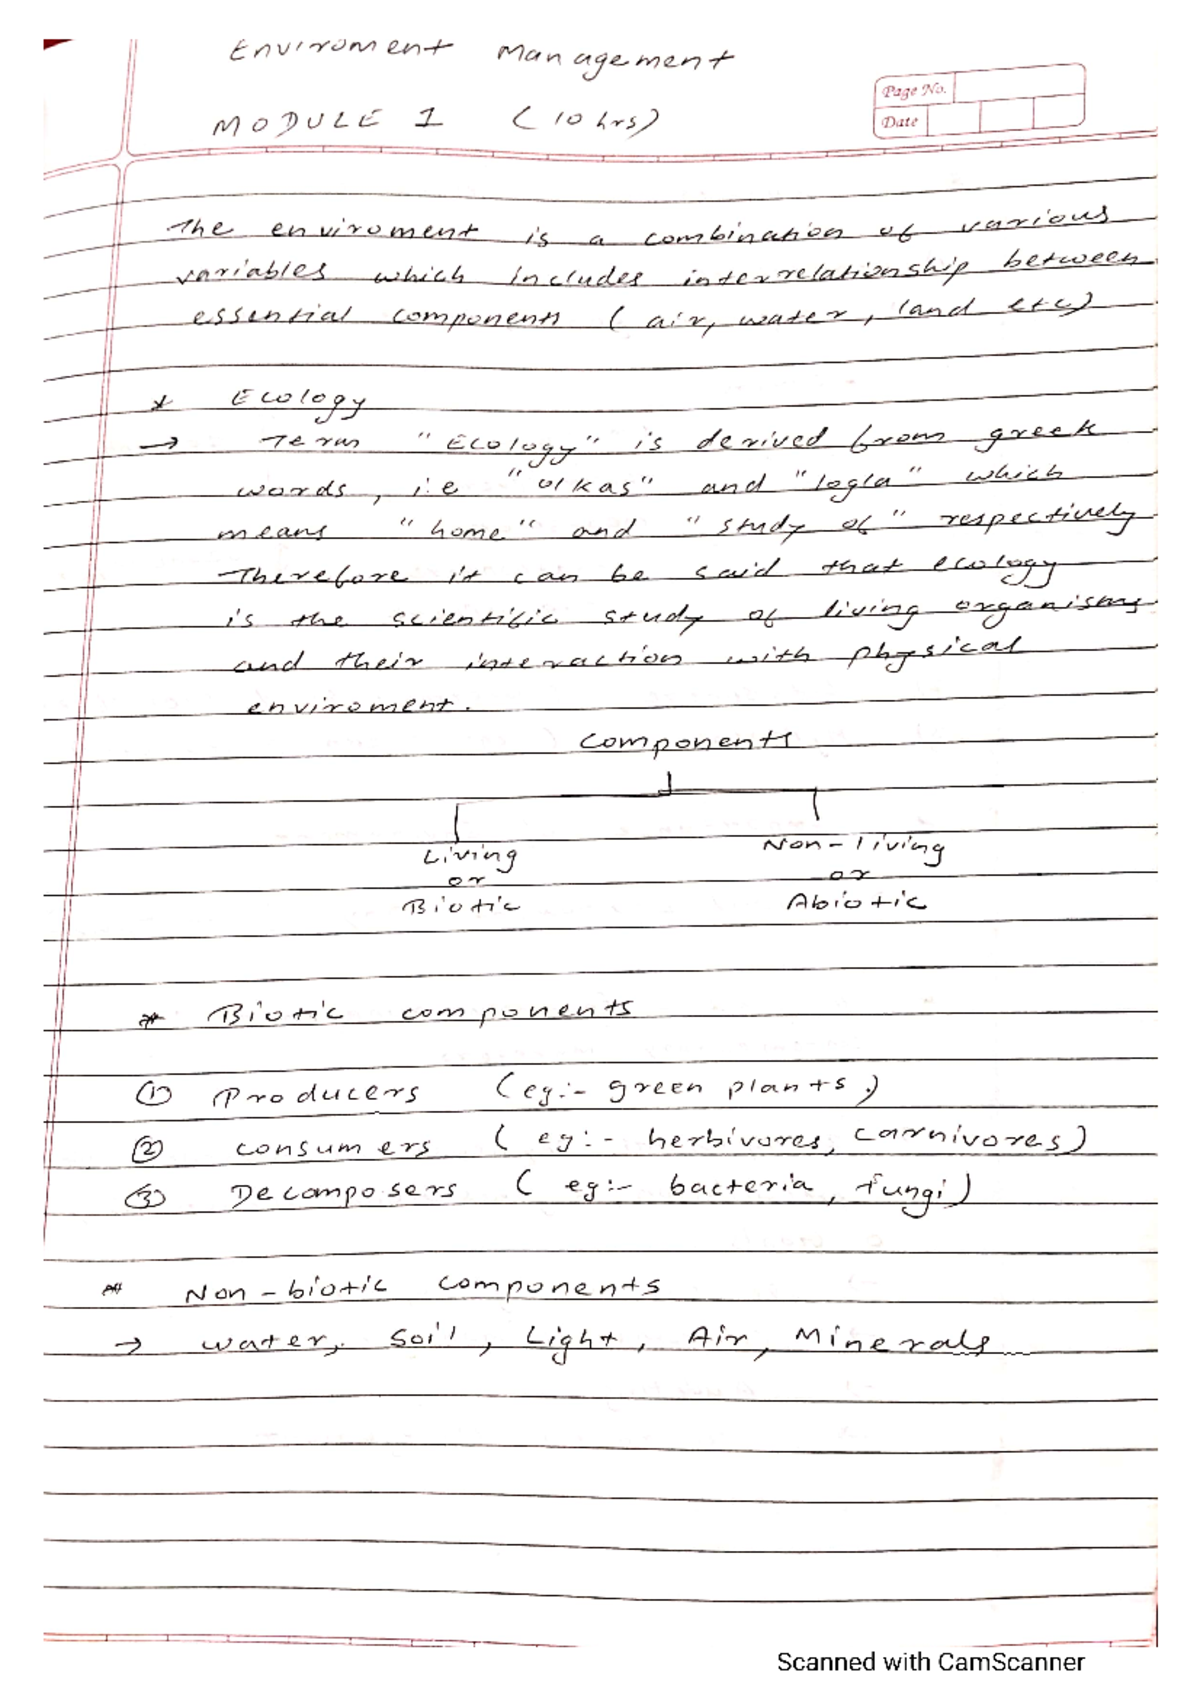 Enviroment Management
MODULE 1 (10 hrs)
Page No.
Date
The enviroment is a combination of various
variables which includes interrelationship between
essential components ( air, water, land etc)
* Ecology
→ Term "Ecology" is derived from greek
words, i.e "olkas" and "logla" which
means "home" and "study of" respectively
Therefore it can be said that ecology
is the scientific study of living organisms
and their interaction with physical
enviroment.
Components
Living Non-living
or or
Biotic Abiotic
* Biotic components
① Producers (eg:- green plants.)
② consumers (eg:- herbivores, carnivores)
③ Decomposers (eg:- bacteria, fungi)
* Non-biotic components
→ water, Soil, Light, Air, Minerals
Scanned with CamScanner